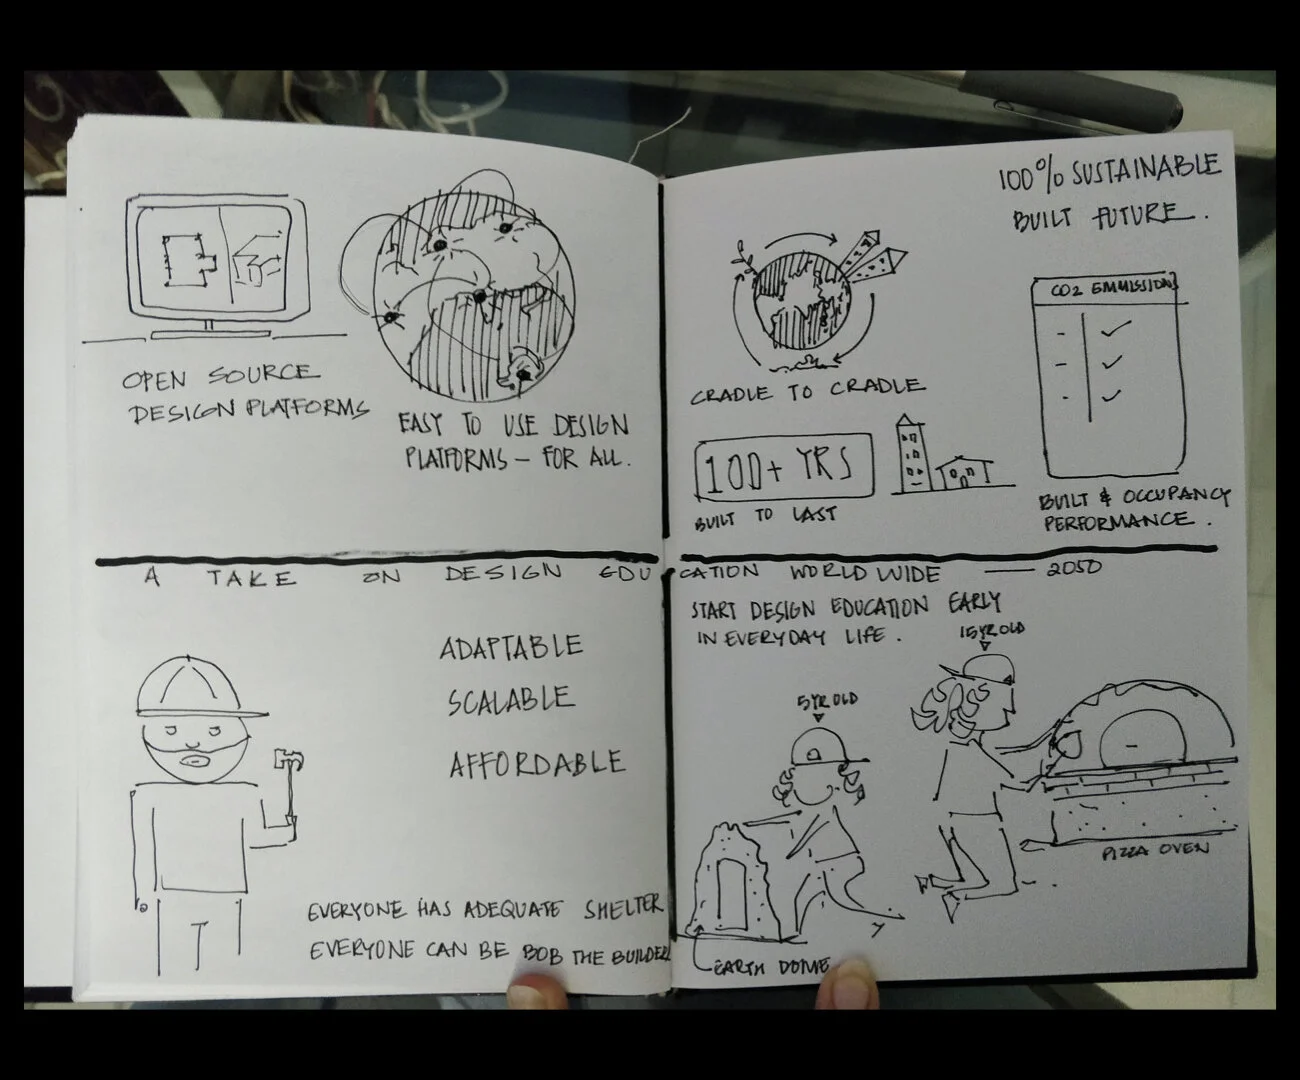 OPEN SOURCE
DESIGN PLATFORMS
EASY TO USE DESIGN
PLATFORMS – FOR ALL.
100% SUSTAINABLE
BUILT FUTURE.
CRADLE TO CRADLE
100+ YRS
BUILT TO LAST
CO2 EMMISSION
BUILT & OCCUPANCY
PERFORMANCE.
A TAKE ON DESIGN EDUCATION WORLD WIDE — 2050
ADAPTABLE
SCALABLE
AFFORDABLE
EVERYONE HAS ADEQUATE SHELTER
EVERYONE CAN BE BOB THE BUILDER
START DESIGN EDUCATION EARLY
IN EVERYDAY LIFE.
5YR OLD
15YR OLD
EARTH DOME
PIZZA OVEN